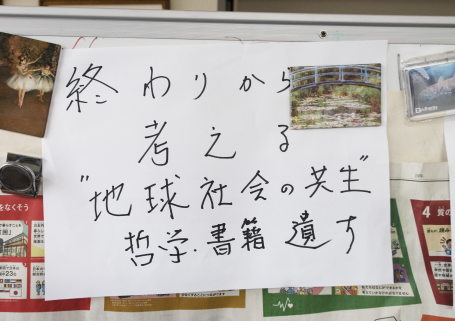 終わりから
考える
"地球社会の共生"
哲学・書籍 遺す
をなくそう
4 質の